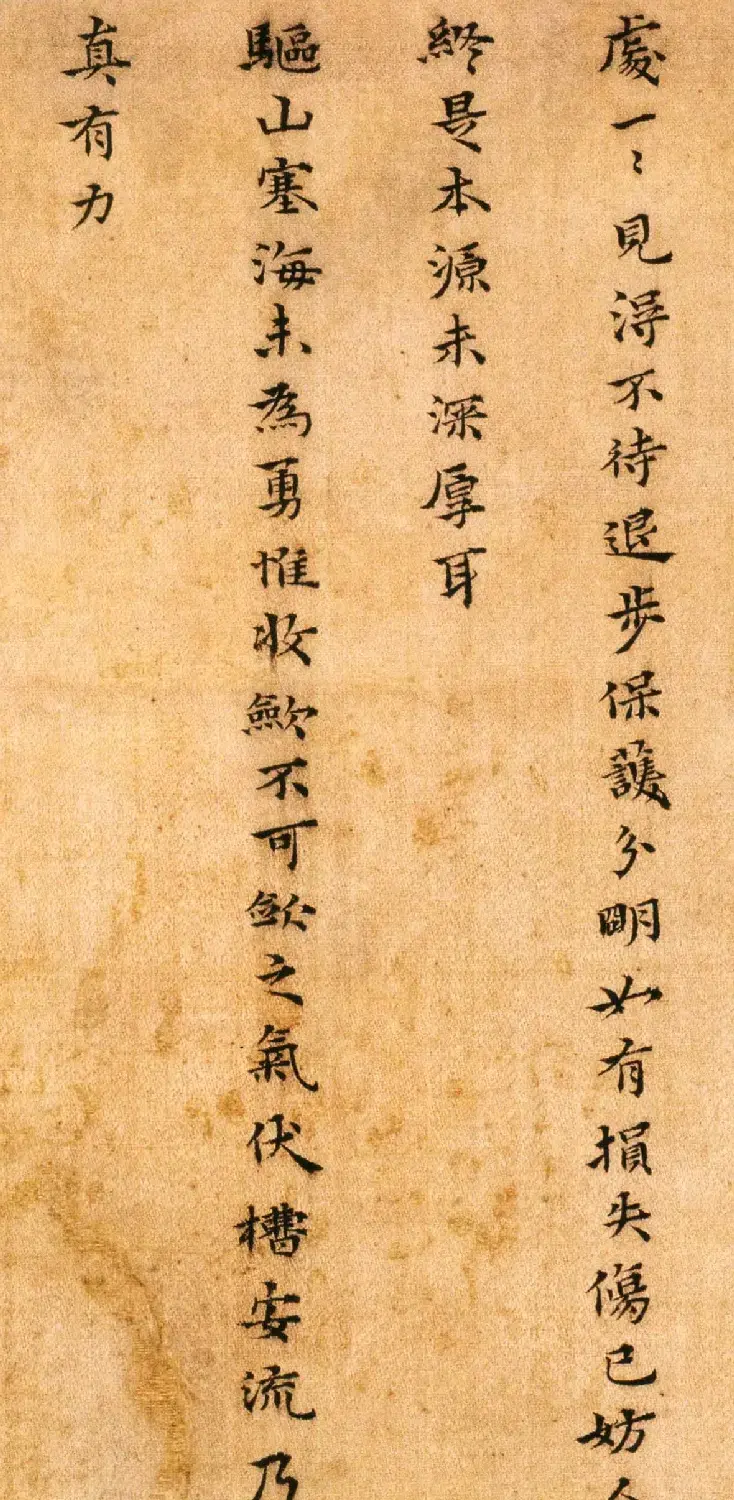 處一〻見得不待退步保護分明如有損失傷己妨
終是本源未深厚耳
驅山塞海未為勇惟收歛不可歛之氣伏槽安流乃
真有力